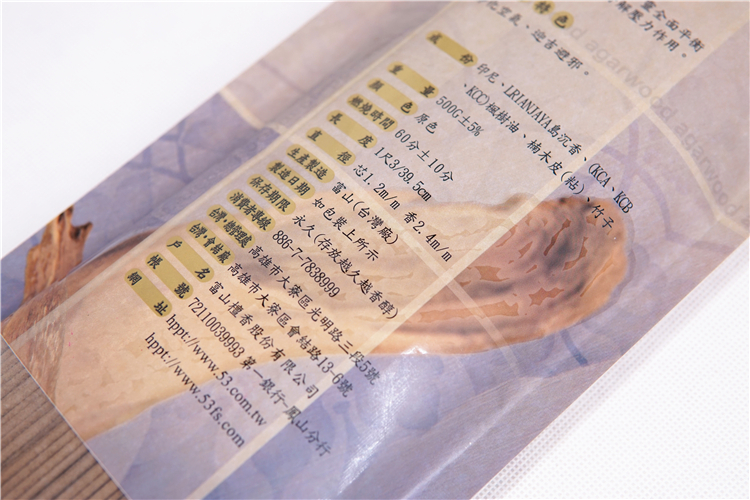 特色
量全面平衡
解壓力作用。
化空氣、迎吉避邪。
成份 印尼、LRIANJAYA島沉香、(KCA、KCB
、KCC)楓樹油、楠木皮(粘)、竹子
重量 500G±5%
顏色 原色
燃燒時間 60分±10分
長度 1尺3/39.5cm
直徑 芯1.2m/m 香2.4m/m
生產製造 富山(台灣廠)
製造日期 如包裝上所示
保存期限 永久(存放越久越香醇)
消費者專線 886-7-7838999
高雄市大寮區光明路三段5號
台灣•會結廠 高雄市大寮區會結路13-6號
戶名 富山檀香股份有限公司
帳號 72110039993 第一銀行-鳳山分行
網址 hppt://www.53.com.tw
hppt://www.53fs.com
d agarwood agarwood